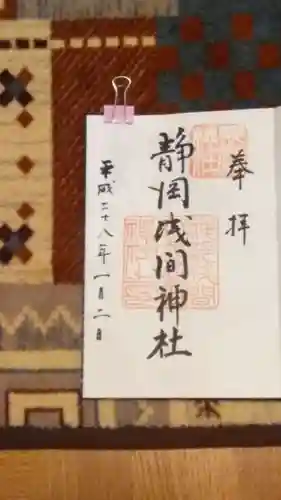 奉拝
静岡浅間神社
平成二十八年一月二日